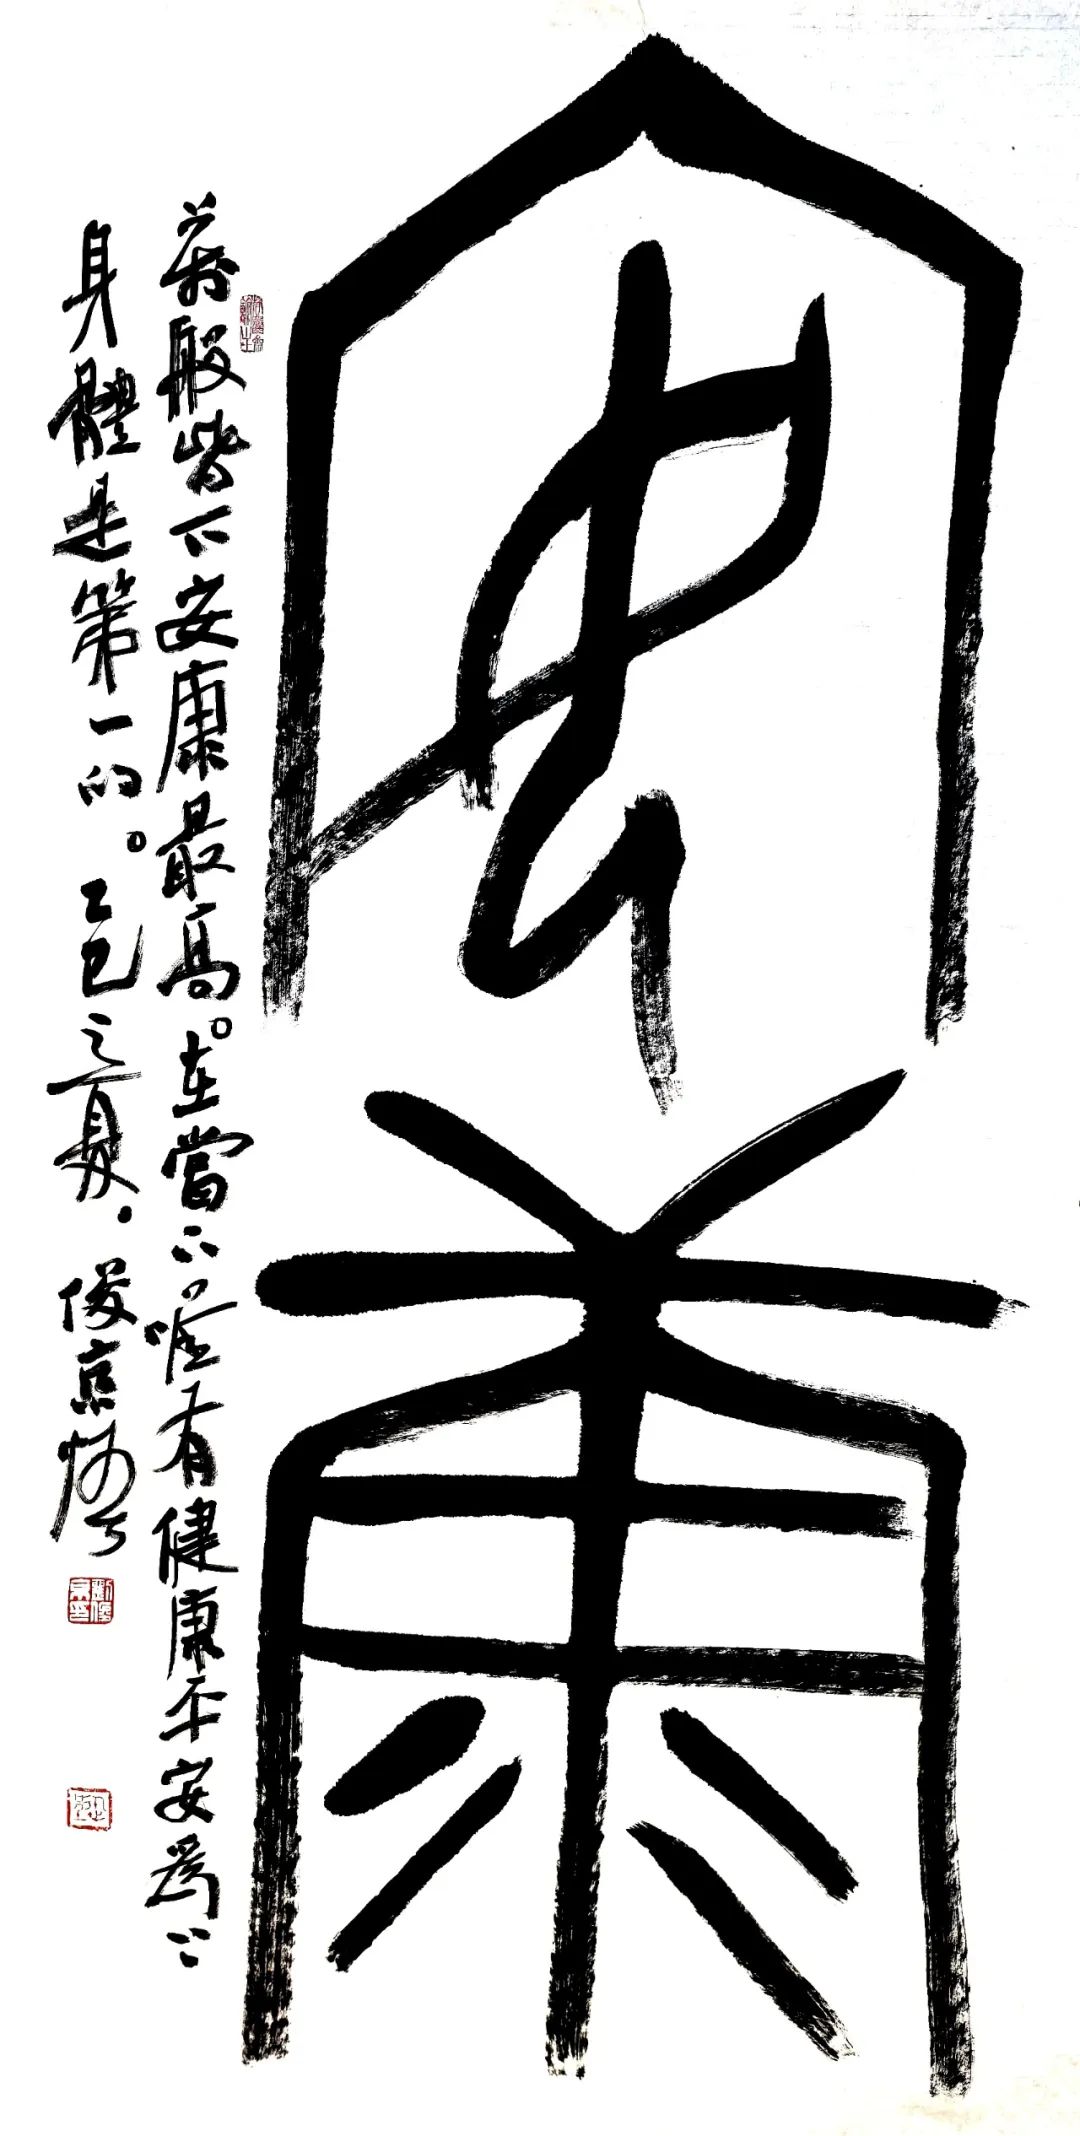 安康
萬般皆下安康最高。在當下，唯有健康平安爲上
身體是第一的。乙巳之夏。俊京
劉俊京印